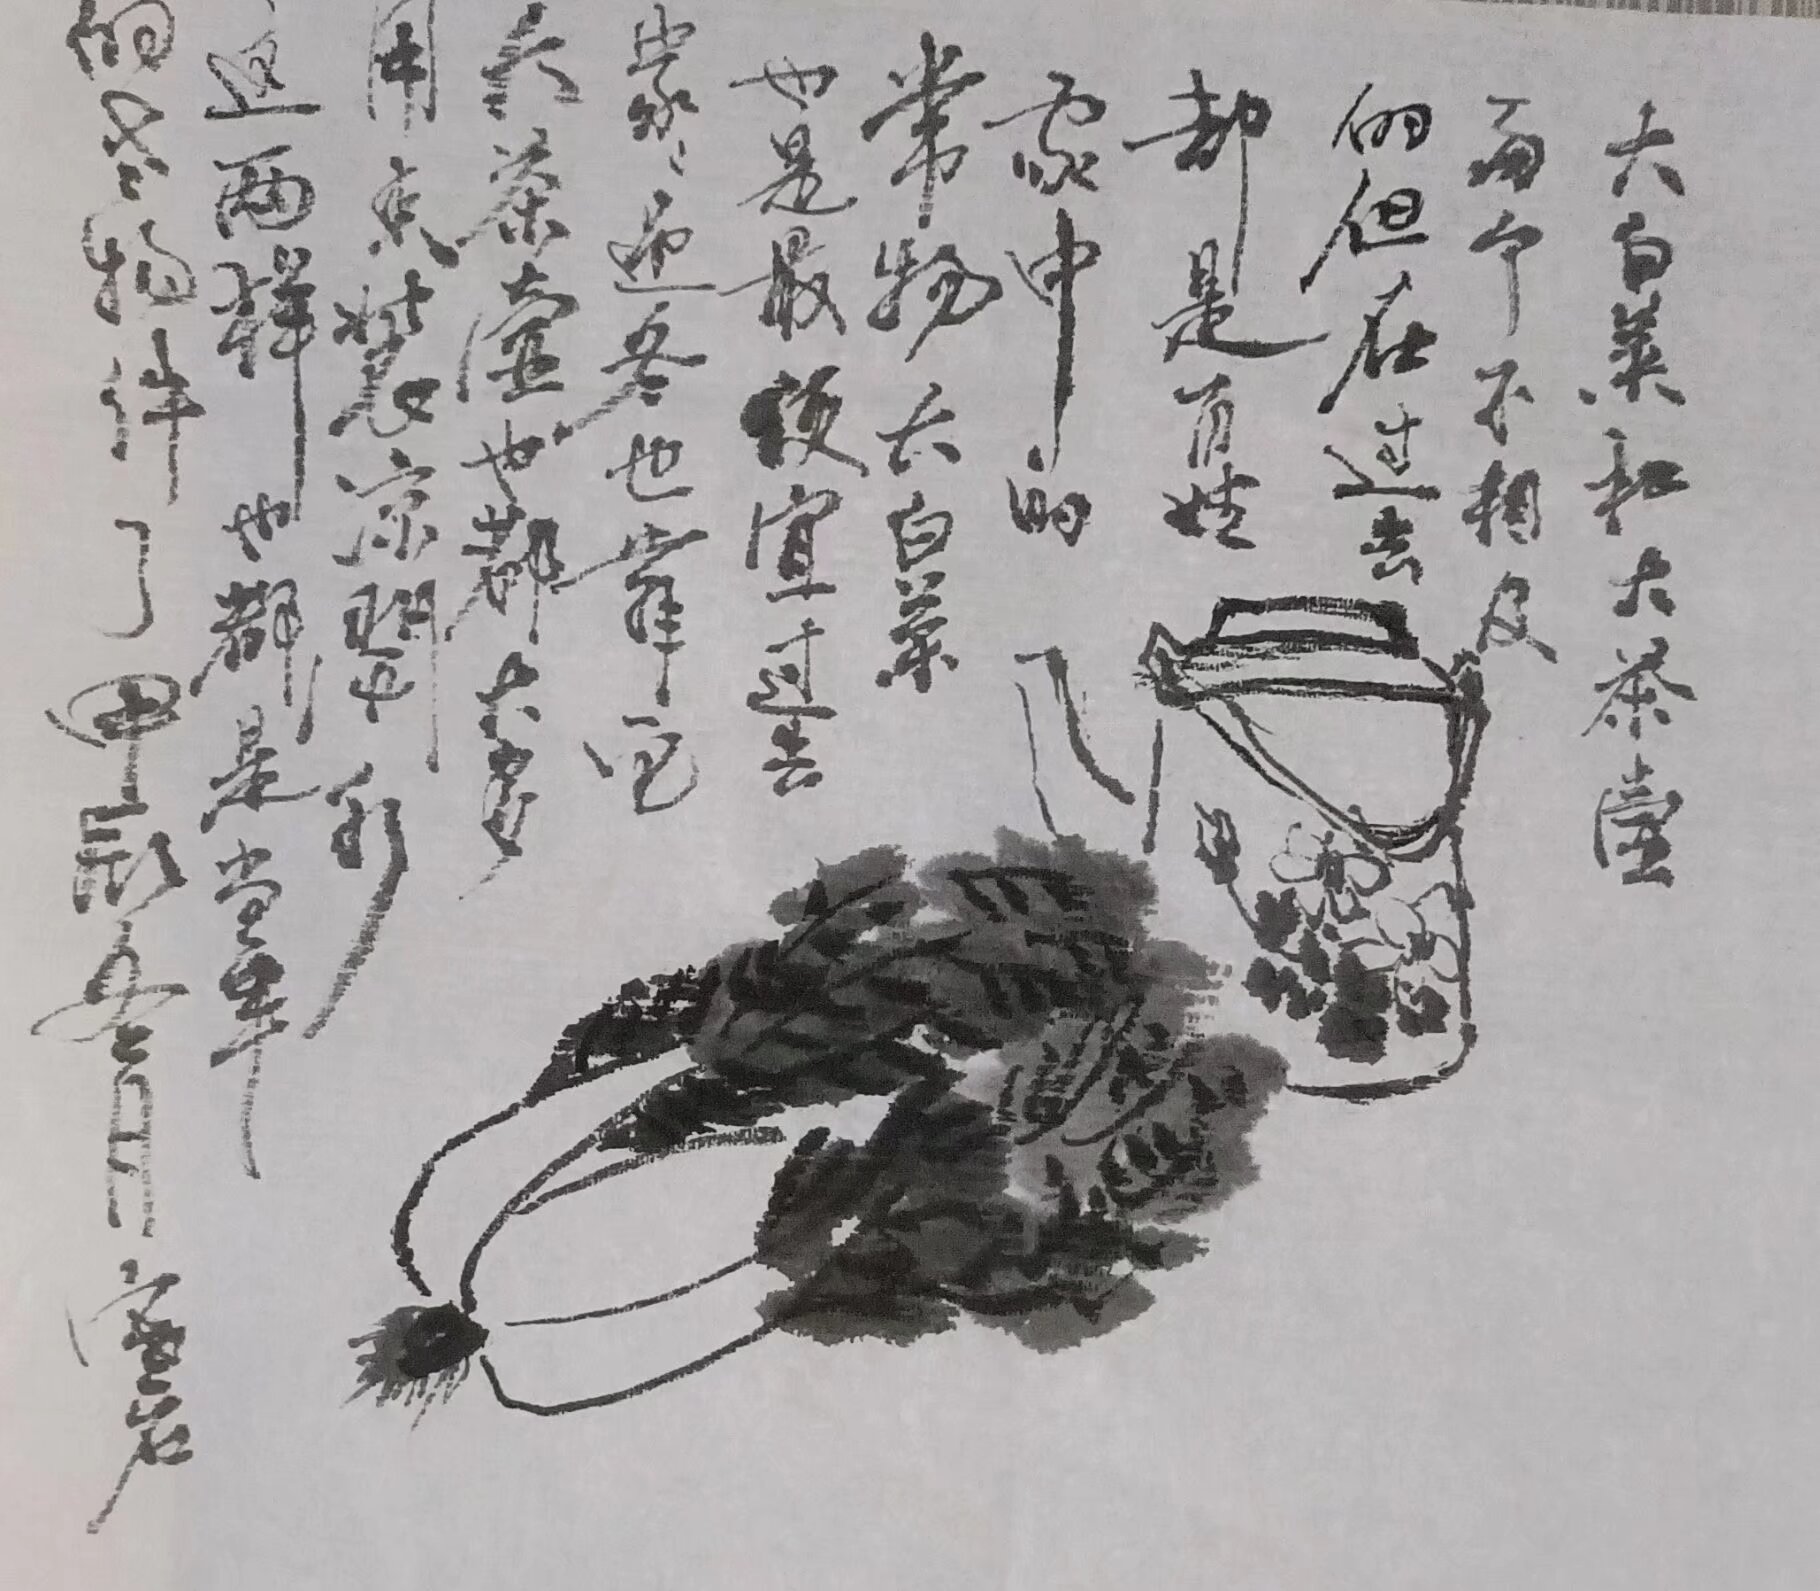 大白菜和大茶壶
两个不相及
的但在过去
都是百姓
家中的
常物大白菜
也是最便宜过去
家家过冬也靠它
大茶壶也都大多
用 装凉
这两样也都是当年
的老物件了甲辰 月